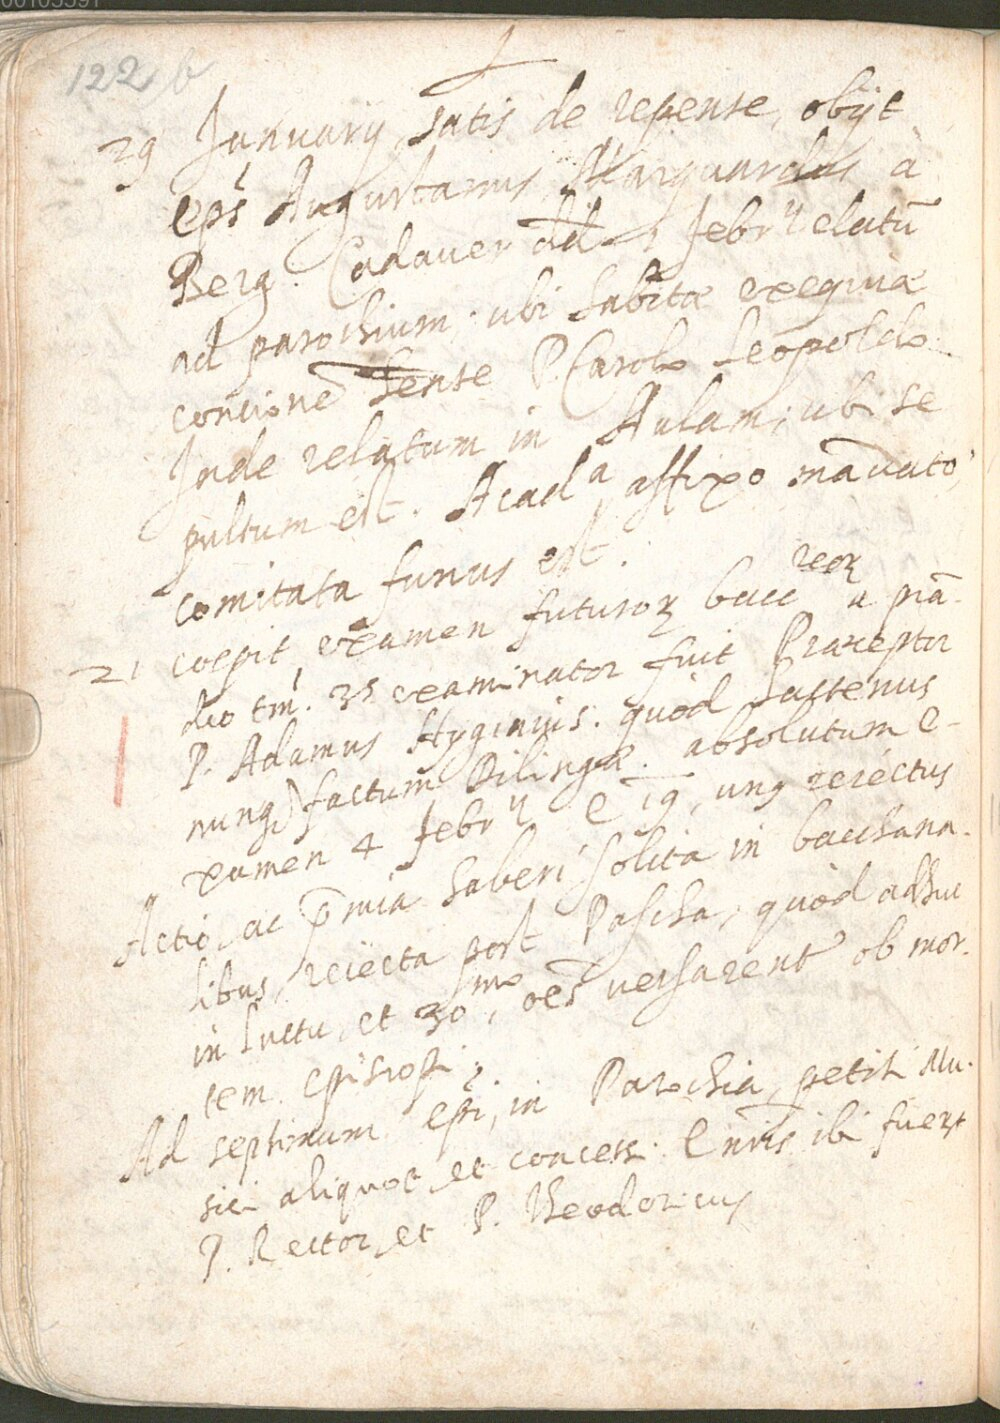 122 b
29 Januarij satis de repente, obijt
eps̄ Augustanus, Marquardus à
Berg. Cadaver dd 1 Febrij elatū
ad parochium; ubi habitae exequiae
concionē hente P. Carolo Leopoldo
Inde relatum in Aulam; ubi se
pultum est. Acada affixo mādato,
comitata funus est.
reoꝝ
21 coepit examen futuroꝝ bacc a prā
dio tm̄. 35 examinator fuit Praeceptor
P. Adamus Hyginus. quod hactenus
nunqꝫ factum Dilingae. absolutum e-
xamen 4 Febrij et 19, unꝰ reiectus
Actio, ac p̄mia haberi solita in bacchana.
libus, reiecta post Pascha, quòd adhuc
in luctu, et 30mo, oēs versarent' ob mor.
tem. episcopi
Ad septimum epi, in Parochia, petiti Mu.
sici aliquot et concessi. E nr̄is ibi fuerꝭt
P. Rector, et P. Theodoricus